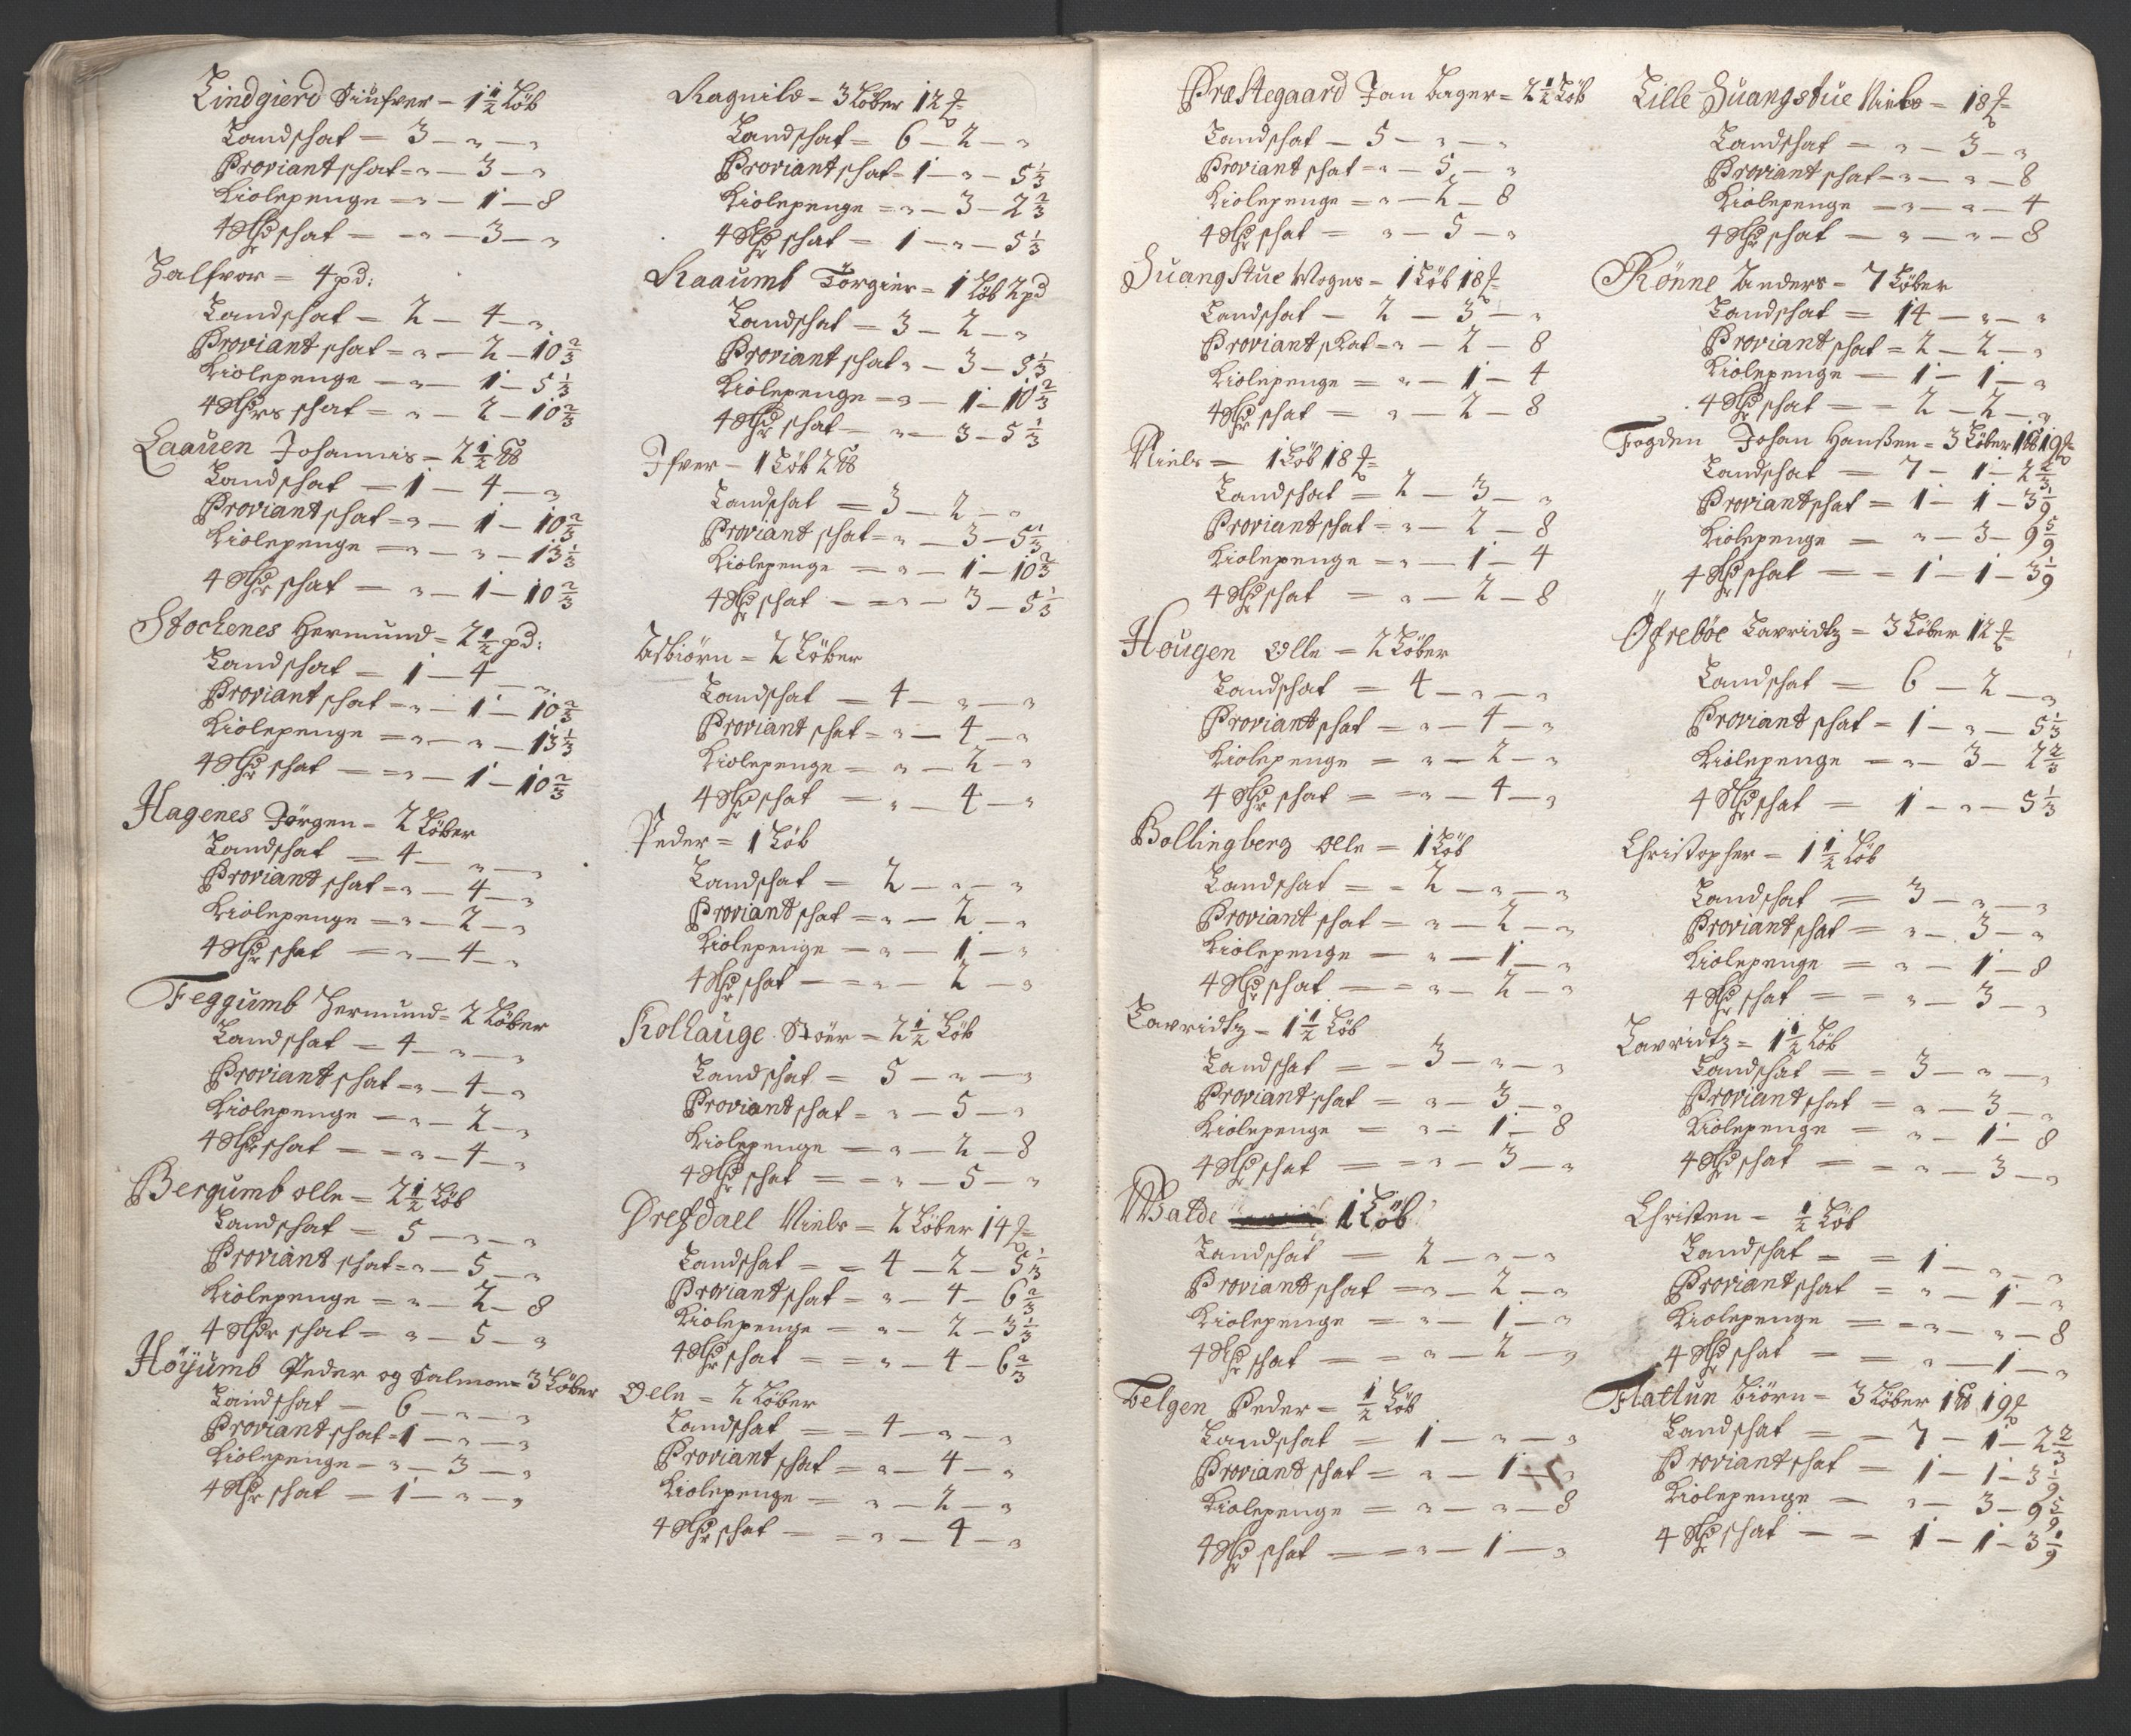 Lindgierd Siufver - 1 1/2 Løb
Landschat = 3 - " - "
Proviantschat = " - 3 - "
Kiolepenge = " - 1 - 8
4 Rdr schat = " - 3 - "
Halfvor = 4 pd:
Landschat = 2 - 4 - "
Proviantschat = " - 2 - 10 2/3
Kiolepenge = " - 1 - 5 1/3
4 Rdrs schat = " - 2 - 10 2/3
Laauen Johannis = 2 1/2 ℔
Landschat = 1 - 4 - "
Proviantschat = " - 1 - 10 2/3
Kiolepenge = " - " - 13 1/3
4 Rdr schat = " - 1 - 10 2/3
Stochenes Hermund = 2 1/2 pd:
Landschat = 1 - 4 - "
Proviantschat = " - 1 - 10 2/3
Kiolepenge = " - " - 13 1/3
4 Rdr schat = " - 1 - 10 2/3
Hagenes Jørgen = 2 Løber
Landschat = 4 - " - "
Proviantschat = " - 4 - "
Kiolepenge = " - 2 - "
4 Rdr schat = " - 4 - "
Feggumb Hermund = 2 Løber
Landschat = 4 - " - "
Proviantschat = " - 4 - "
Kiolepenge = " - 2 - "
4 Rdr schat = " - 4 - "
Bergumb Olle = 2 1/2 Løb
Landschat = 5 - " - "
Proviantschat = " - 5 - "
Kiolepenge = " - 2 - 8
4 Rdr schat = " - 5 - "
Høyumb Peder og Salmon = 3 Løber
Landschat = 6 - " - "
Proviantschat = 1 - " - "
Kiolepenge = " - 3 - "
4 Rdr schat = 1 - " - "
Ragnild = 3 Løber 12 ℔
Landschat = 6 - 2 - "
Proviantschat = 1 - " - 5 1/3
Kiolepenge = " - 3 - 2 2/3
4 Rdr schat = 1 - " - 5 1/3
Raaumb Torgier = 1 Løb 2 pd
Landschat = 3 - 2 - "
Proviantschat " - 3 - 5 1/3
Kiolepenge = " - 1 - 10 2/3
4 Rdr schat - " - 3 - 5 1/3
Ifver - 1 Løb 2 ℔
Landschat = 3 - 2 - "
Proviantschat = " - 3 - 5 1/3
Kiolepenge = " - 1 - 10 2/3
4 Rdr schat = " - 3 - 5 1/3
Asbiörn = 2 Løber
Landschat = 4 - " - "
Proviantschat = " - 4 - "
Kiolepenge = " - 2 - "
4 Rdr schat = " - 4 - "
Peder = 1 Løb
Landschat = 2 - " - "
Proviantschat = " - 2 - "
Kiolepenge = " - 1 - "
4 Rdr schat = " - 2 - "
Kollauge Stoer = 2 1/2 Løb
Landschat = 5 - " - "
Proviantschat = " - 5 - "
Kiolepenge = " - 2 - 8
4 Rdr schat = " - 5 - "
Niels = 2 Løber 14 ℔
Landschat = 4 - 2 - 5 1/3
Proviantschat = " - 4 - 6 2/3
Kiolepenge = " - 2 - 3 1/3
4 Rdr schat = " - 4 - 6 2/3
Oele = 2 Løber
Landschat = 4 - " - "
Proviantschat = " - 4 - "
Kiolepenge = " - 2 - "
4 Rdr schat = " - 4 - "
Præstegaard Jan Lager = 2 1/2 Løb
Landschat - 5 - " - "
Proviantschat = " - 5 - "
Kiolepenge = " - 2 - 8
4 Rdr schat = " - 5 - "
Suangstue Mogns - 1 Løb 18 ℔
Landschat - 2 - 3 - "
Proviantskat = " - 2 - 8
Kiolepenge = " - 1 - 4
4 Rdr schat = " - 2 - 8
Niels = 1 Løb 18 ℔
Landschat = 2 - 3 - "
Proviantschat = " - 2 - 8
Kiolepenge = " - 1 - 4
4 Rdr schat = " - 2 - 8
Hougen Olle = 2 Løber
Landschat = 4 - " - "
Proviantschat = " - 4 - "
Kiolepenge = " - 2 - "
4 Rdr schat = " - 4 - "
Bollingberg Olle = 1 Løb
Landschat = 2 - " - "
Proviantschat = " - 2 - "
Kiolepenge = " - 1 - "
4 Rdr schat = " - 2 - "
Lavridtz = 1 1/2 Løb
Landschat = 3 - " - "
Proviantschat = " - 3 - "
Kiolepenge = " - 1 - 8
4 Rdr schat = " - 3 - "
Walde 1 Løb
Landschat = 2 - " - "
Proviantschat = " - 2 - "
Kiolepenge = " - 1 - "
4 Rdr schat = " - 2 - "
Felgen Peder = 1/2 Løb
Landschat = 1 - " - "
Proviantschat = " - 1 - "
Kiolepenge = " - " - 8
4 Rdr schat = " - 1 - "
Lille Suangstue Niels = 18 ℔
Landschat = " - 3 - "
Proviantschat = " - " - 8
Kiolepenge = " - " - 4
4 Rdr schat = " - " - 8
Rönne Anders - 7 Løber
Landschat = 14 - " - "
Proviantschat = 2 - 2 - "
Kiolepenge = 1 - 1 - "
4 Rdr schat = 2 - 2 - "
Fogden Johan Hanßen = 3 Løber 1 ℔ 19 ℔
Landschat = 7 - 1 - 2 2/3
Proviantschat = 1 - 1 - 3 1/9
Kiolepenge = " - 3 - 9 5/9
4 Rdr schat = 1 - 1 - 3 1/9
Öfrebøe Lavridtz = 3 Løber 12 ℔
Landschat = 6 - 2 - "
Proviantschat = 1 - " - 5 1/3
Kiolepenge = " - 3 - 2 2/3
4 Rdr schat = 1 - " - 5 1/3
Christopher = 1 1/2 Løb
Landschat = 3 - " - "
Proviantschat = " - 3 - "
Kiolepenge = " - 1 - 8
4 Rdr schat = " - 3 - "
Lavridtz = 1 1/2 Løb
Landschat = 3 - " - "
Proviantschat = " - 3 - "
Kiolepenge = " - 1 - 8
4 Rdr schat = " - 3 - "
Christen = 1/2 Løb
Landschat = 1 - " - "
Proviantschat = " - 1 - "
Kiolepenge = " - " - 8
4 Rdr schat = " - 1 - "
Flatlun Biörn = 3 Løber 1 ℔ 19 ℔
Landschat = 7 - 1 - 2 2/3
Proviantschat = 1 - 1 - 3 1/9
Kiolepenge = " - 3 - 9 5/9
4 Rdr schat = 1 - 1 - 3 1/9